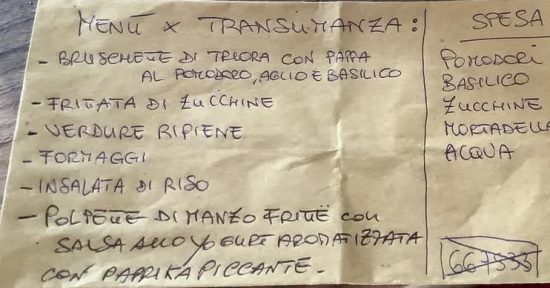 MENÙ X TRANSUMANZA:
- BRUSCHETTE DI TRIORA CON PAPPA
AL POMODORO, AGLIO E BASILICO
- FRITTATA DI ZUCCHINE
- VERDURE RIPIENE
- FORMAGGI
- INSALATA DI RISO
- POLPETTE DI MANZO FRITTE CON
SALSA ALLO YOGURT AROMATIZZATA
CON PAPRIKA PICCANTE.
SPESA
POMODORI
BASILICO
ZUCCHINE
MORTADELLA
ACQUA